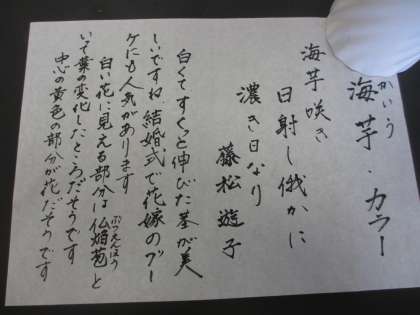 かいう
海芋・カラー
海芋咲き
日射し俄かに
濃き日なり
藤松遊子
白くてすくっと伸びた茎が美
しいですね。結婚式で花嫁のブー
ケにも人気があります
白い花に見える部分は仏焔苞と
ぶつえんほう
いって葉の変化したところだそうです
中心の黄色の部分が花だそうです